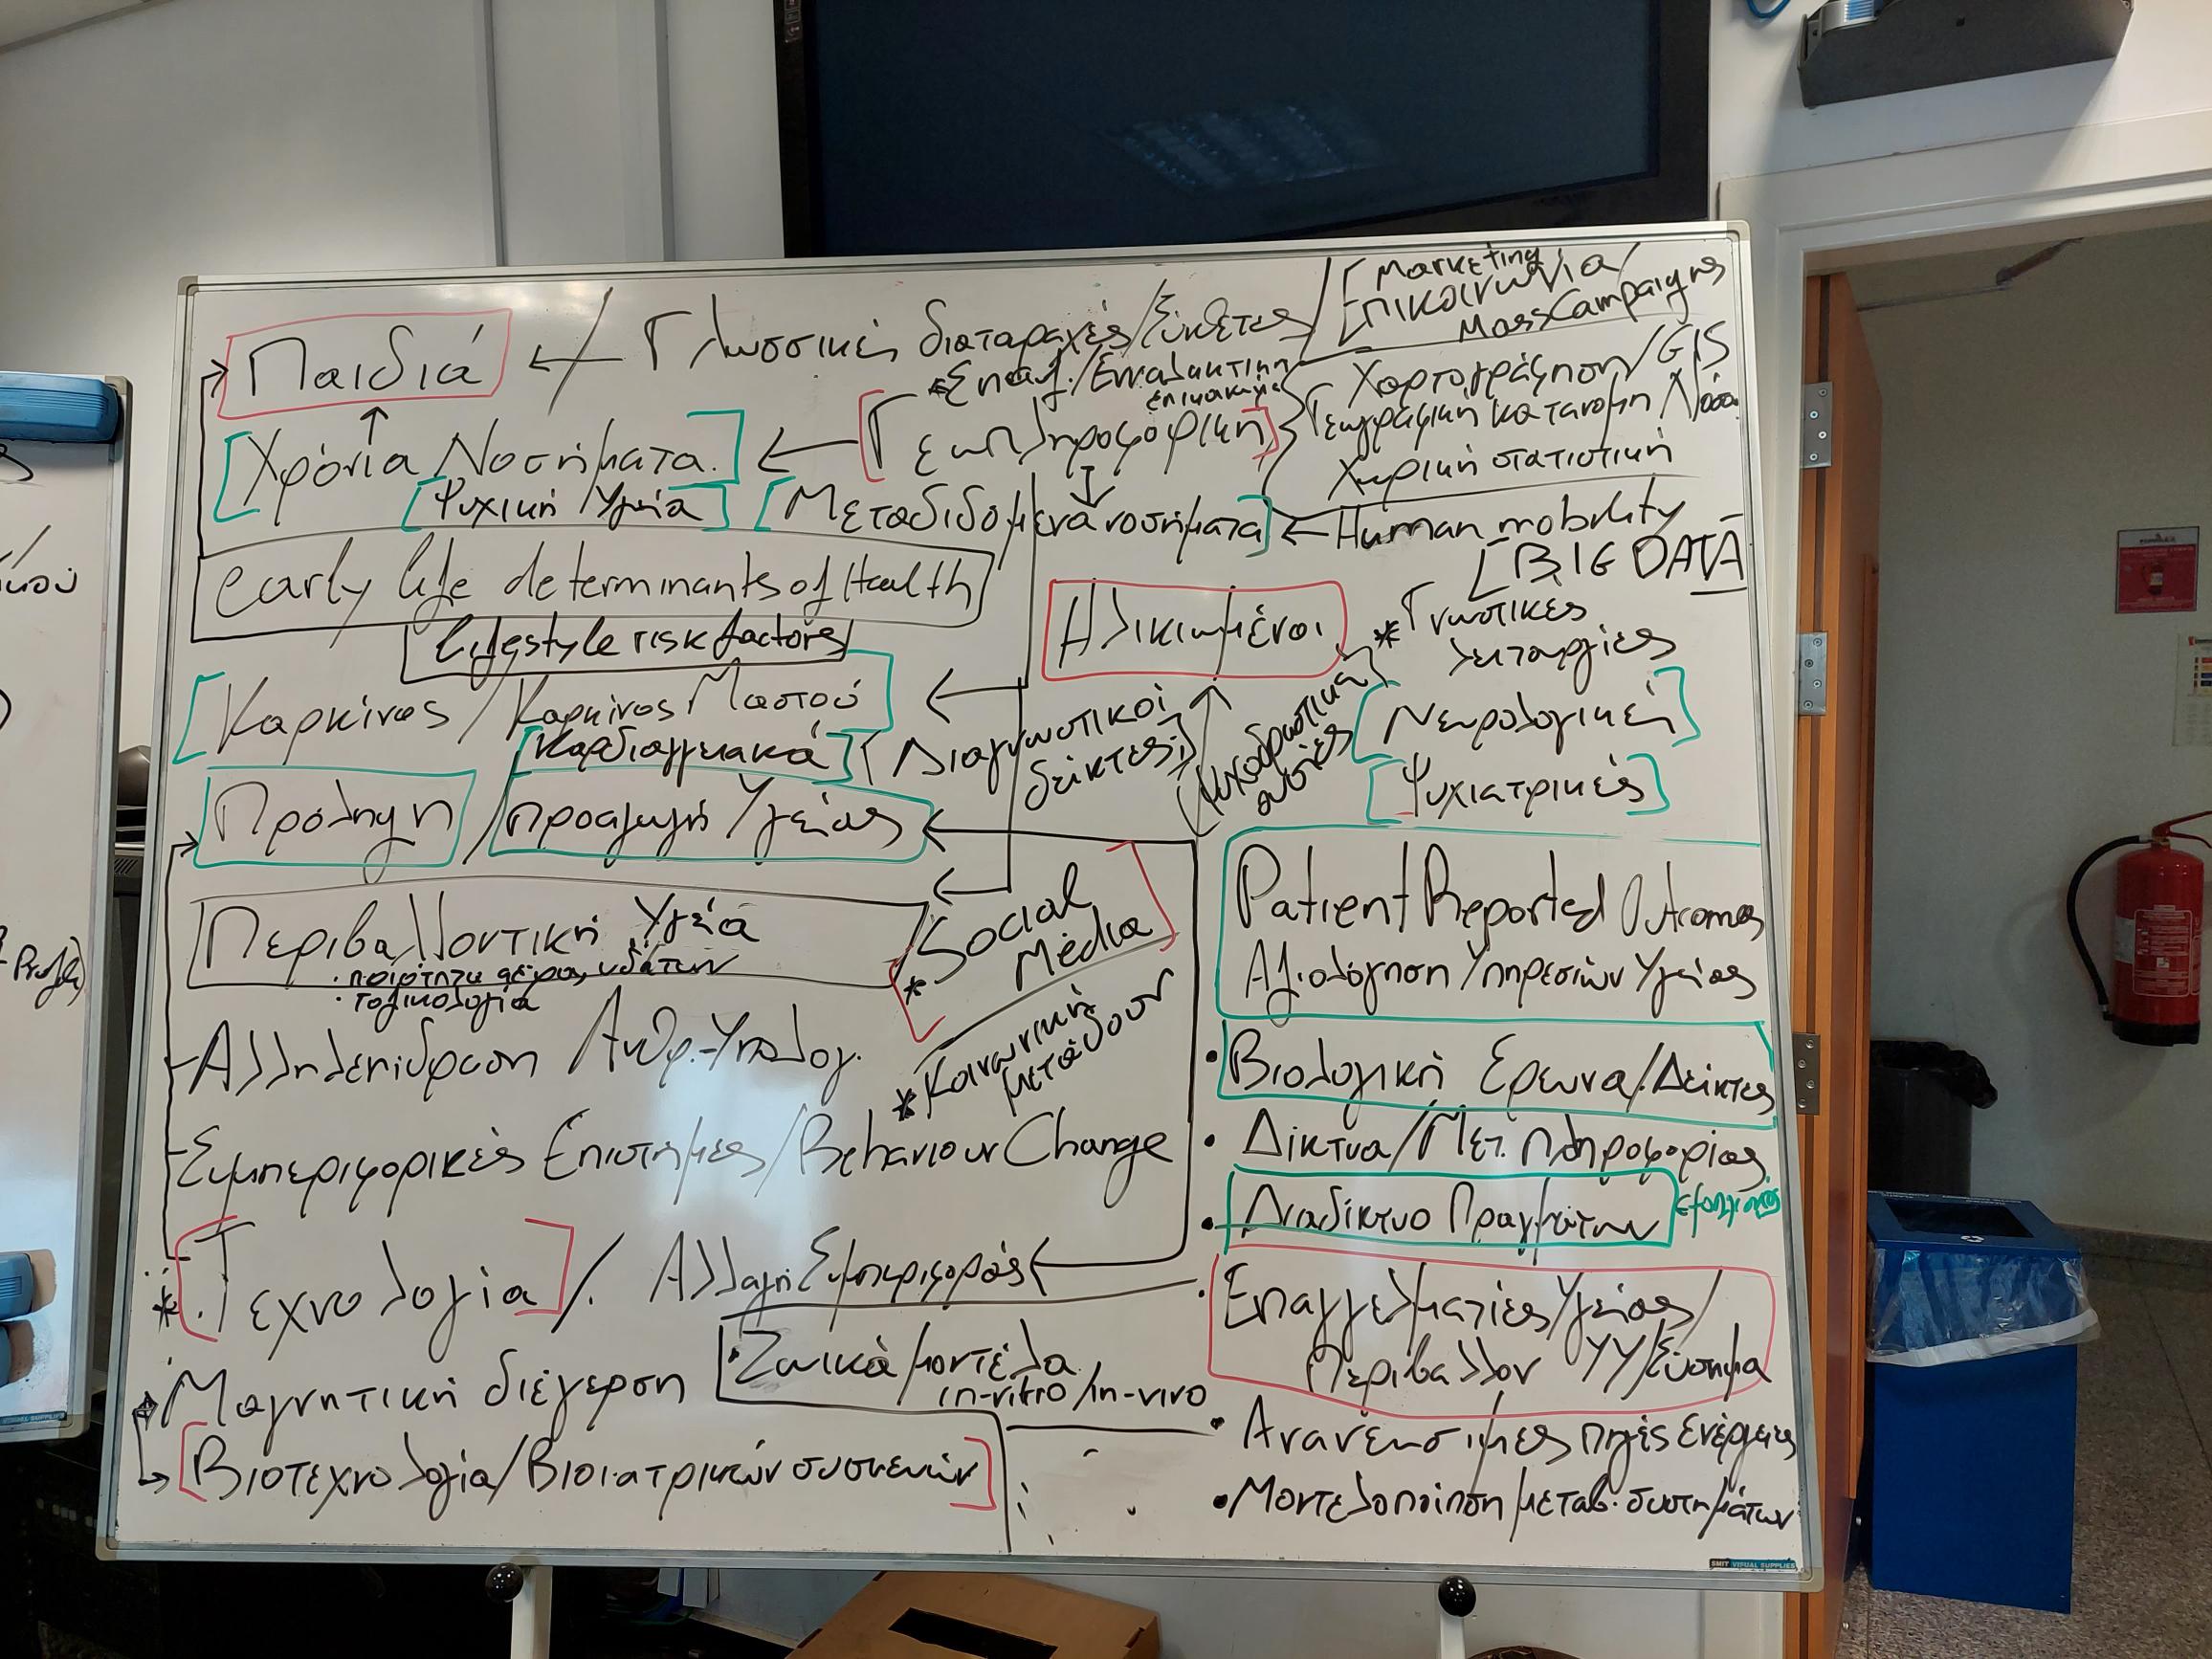 Παιδιά
Γλωσσικές διαταραχές/Σύνθετες
Marketing
Επικοινωνία/
Mass Campaigns
Επαυξ./Εναλλακτική
επικοινωνία
Χαρτογράφηση/GIS
Γεωγραφική κατανομή Νόσου
Χωρική στατιστική
Χρόνια Νοσήματα
Γεωπληροφορική
Ψυχική Υγεία
Μεταδιδόμενα νοσήματα
Human mobility
BIG DATA
early life determinants of Health
Lifestyle risk factors
Ηλικιωμένοι
* Γνωστικές
λειτουργίες
Καρκίνος / Καρκίνος Μαστού
Καρδιαγγειακά
Διαγνωστικοί
δείκτες
Ψυχοδραστικές
ουσίες
Νευρολογικές
Ψυχιατρικές
Πρόληψη / Προαγωγή Υγείας
Περιβαλλοντική Υγεία
· ποιότητα αέρα, υδάτων
· τοξικολογία
* Social
Media
* Κοινωνική
μεταδοση
Patient Reported Outcomes
Αξιολόγηση Υπηρεσιών Υγείας
- Αλληλεπίδραση Ανθρ.-Υπολογ.
• Βιολογική Έρευνα/Δείκτες
- Συμπεριφορικές Επιστήμες/Behaviour Change
• Δίκτυα/Μετ. Πληροφορίας
• Διαδίκτυο Πραγμάτων
* Τεχνολογία / Αλλαγή Συμπεριφοράς
· Επαγγελματίες Υγείας/
Περιβάλλον ΥΥ/Σύστημα
Μαγνητική διέγερση
· Ζωικά μοντέλα
in-vitro/in-vivo
Βιοτεχνολογία/Βιοϊατρικών συσκευών
• Ανανεώσιμες πηγές ενέργειας
• Μοντελοποίηση μεταβ. συστημάτων
SMIT VISUAL SUPPLIES